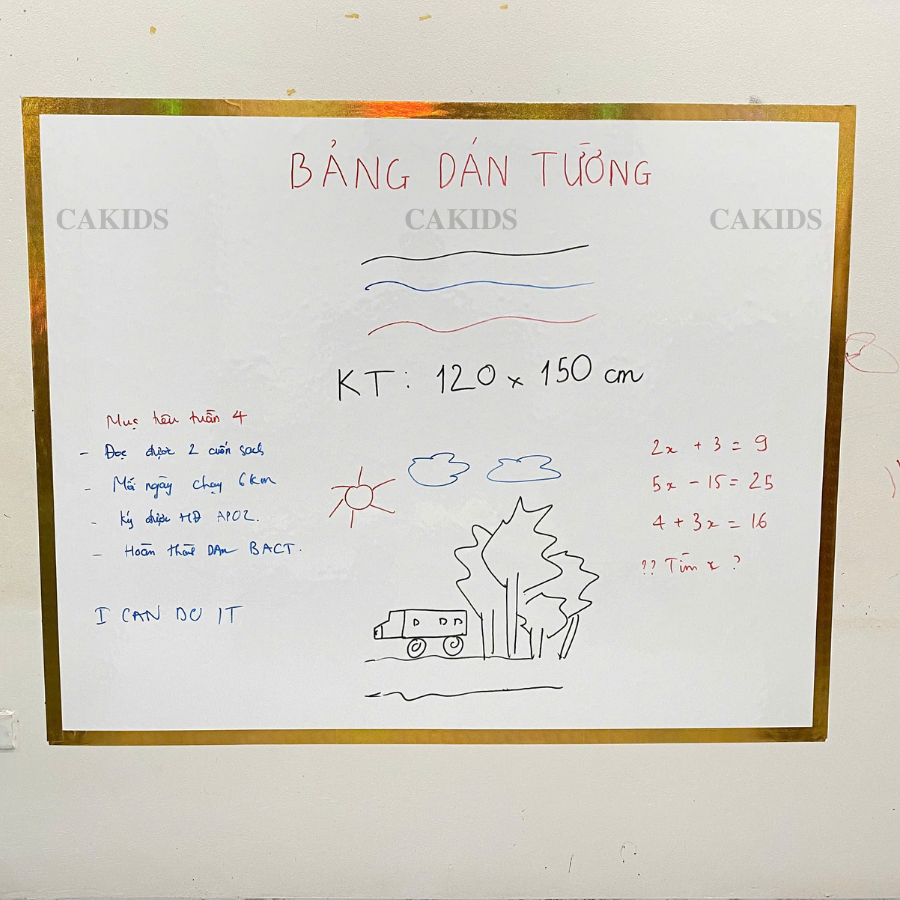 BẢNG DÁN TƯỜNG
CAKIDS CAKIDS CAKIDS
KT: 120 x 150 cm
Mục tiêu tuần 4
- Đọc được 2 cuốn sách
- Mỗi ngày chạy 6km
- Ký được HĐ APOZ.
- Hoàn thành BACT.
I CAN DO IT
2x + 3 = 9
5x - 15 = 25
4 + 3x = 16
?? Tìm x ?